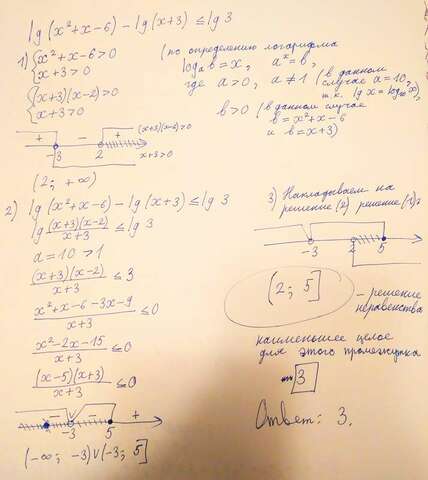 lg (x²+x-6) - lg (x+3) ≤ lg 3
1) { x²+x-6>0
x+3>0
{ (x+3)(x-2)>0
x+3>0
(по определению логарифма
logₐ b = x, aˣ = b,
где a>0, a≠1 (в данном
случае a=10,
т.к. lg x = log₁₀ x),
b>0 (в данном случае
b = x²+x-6
и b = x+3)
+ - +
(x+3)(x-2)>0
-3 2
x+3>0
(2; +∞)
2) lg (x²+x-6) - lg (x+3) ≤ lg 3
lg (x+3)(x-2)/x+3 ≤ lg 3
a = 10 > 1
(x+3)(x-2)/x+3 ≤ 3
x²+x-6-3x-9/x+3 ≤ 0
x²-2x-15/x+3 ≤ 0
(x-5)(x+3)/x+3 ≤ 0
- - +
-3 5
(-∞; -3) ∪ (-3; 5]
3) Накладываем на
решение (2) решение (1):
-3 2 5
(2; 5]
- решение
неравенства
наименьшее целое
для этого промежутка
3
Ответ: 3.